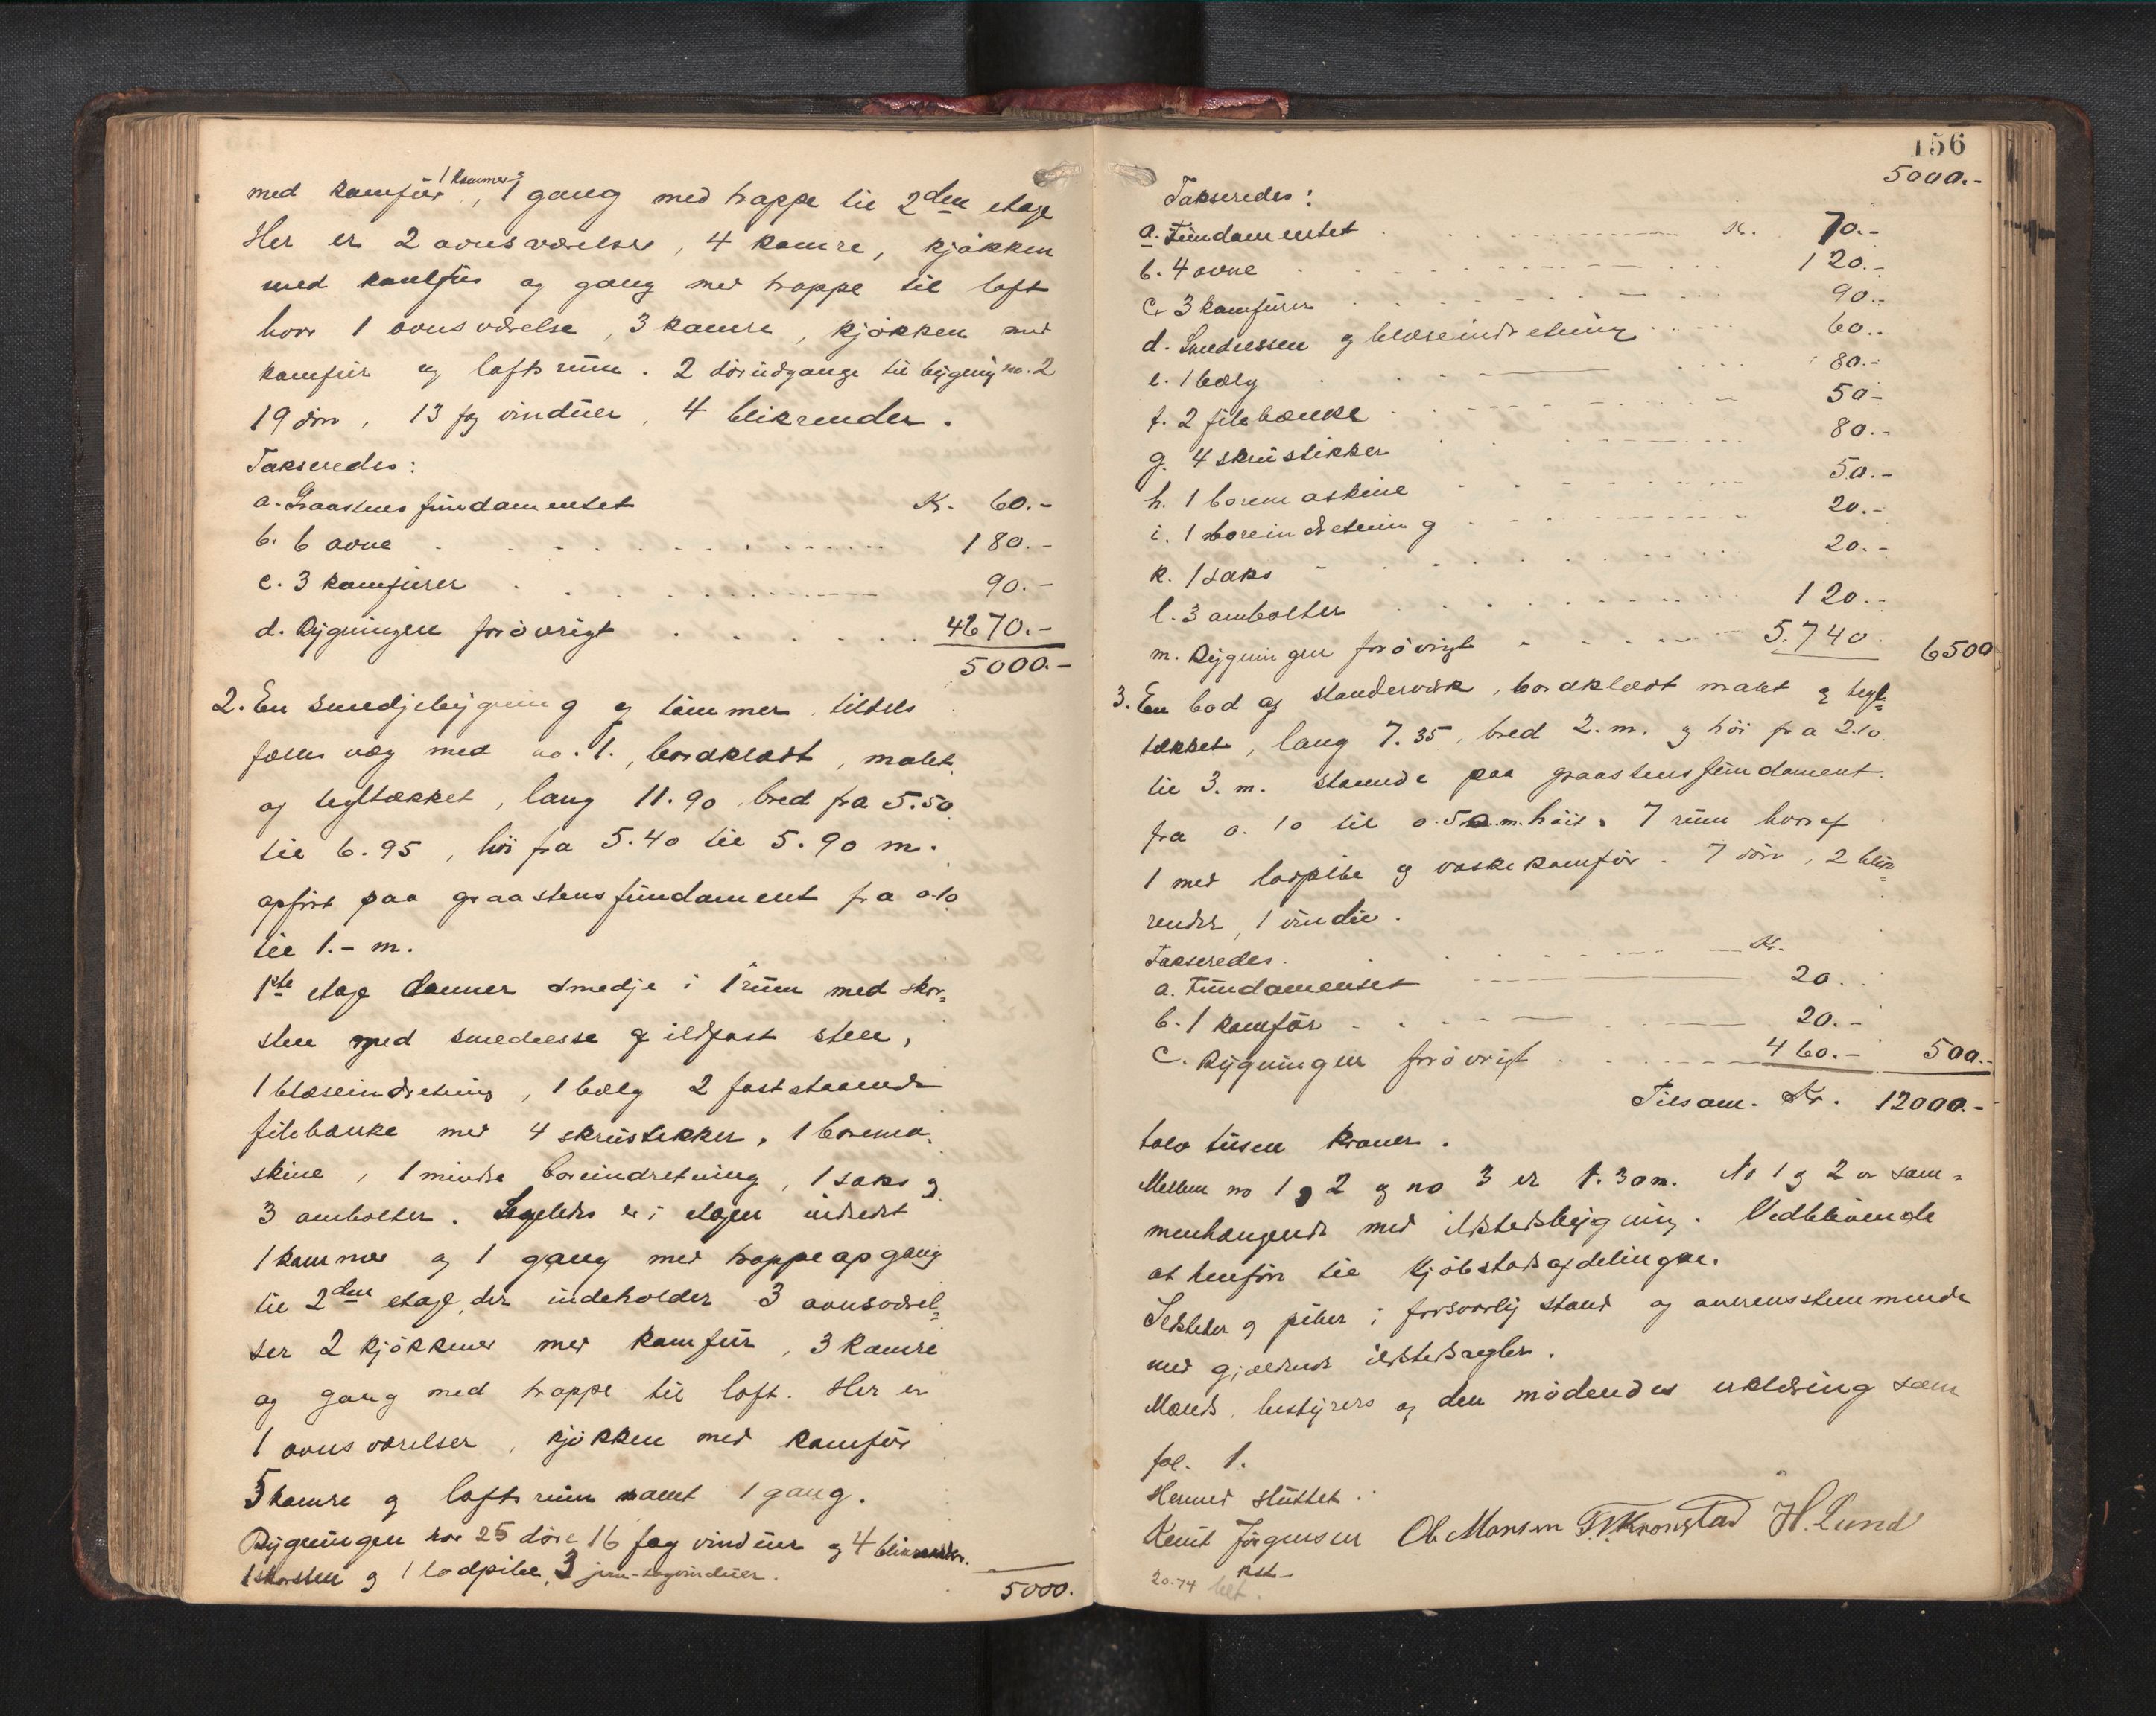 med kamfür, 1 kammer, 1 gang med trappe til 2den etage
Her er 2 ovnsværelser, 4 kamre, kjökken
med kamfür og gang med trappe til loft
hvor 1 ovnsværelse, 3 kamre, kjökken med
kamfür og loftsrüm. 2 dörindgange til bygning no. 2
19 dör, 13 fag vindüer, 4 blikrender.
Takseredes:
a. Graastensfündamentet Kr. 60.-
b. 6 ovne 180.-
c. 3 kamfürer 90.-
d. Bygningen forövrigt 4670.-
5000.-
2. En smedjebygning af tömmer, tildels
fælles væg med no. 1., bordklædt, malet
og tegltækket, lang 11.90, bred fra 5.50
til 6.95, höi fra 5.40 til 5.90 m.
opfört paa graastensfündament fra 0.10
til 1.- m.
1ste etage danner smedje i 1 rüm med skor-
sten med smedeesse af ildfast sten,
1 blæseindretning, 1 bælg 2 faststaaende
filebænke med 4 skrüstikker, 1 borema-
skine, 1 mindre boreindretning, 1 saks og
3 ambolter. Ligeledes er i etagen indredet
1 kammer og 1 gang med trappeopgang
til 2den etage, der indeholder 3 ovnsværel-
ser 2 kjökkener med kamfür, 3 kamre
og gang med trappe til loft. Her er
1 ovnsværelser, kjökken med kamför
5 kamre og loftsrüm samt 1 gang.
Bygningen har 25 döre 16 fag vindüer og 4 blikrender.
1 skorsten og 1 lodpibe, 3 jern-tagvindüer.
5000.
156
5000.-
Takseredes:
a. Fündamentet Kr. 70.-
b. 4 ovne 120.-
c. 3 kamfürer 90.-
d. Smedeessen og blæseindretning 60.-
e. 1 bælg 80.-
f. 2 filebænke 50.-
g. 4 skrüstikker 80.-
h. 1 boremaskine 50.-
i. 1 boreindretning 20.-
k. 1 saks 20.-
l. 3 ambolter 120.-
m. Bygningen forövrigt 5.740 6500
3. En bod af standerværk, bordklædt malet og tegl-
tækket, lang 7.35, bred 2. m. og höi fra 2.10
til 3. m. staaende paa graastensfündament
fra 0.10 til 0.50 m. höit. 7 rüm hvoraf
1 med lodpibe og vaskekamför. 7 dör, 2 blik-
render, 1 vindü.
Takseredes. Kr.
a. Fündamentet 20.
b. 1 kamför 20.-
c. Bygningen forövrigt 460.- 500.-
Tilsam. Kr. 12000.-
tolv tüsen kroner.
Mellem no 1 og 2 og no 3 er 1.30 m. No 1 og 2 er sam-
menhængende med ildstedsbygning. Vedblivende
at henför til kjöbstadsafdelingen.
Ildsteder og piber i forsvarlig stand og overensstemmende
med gjældende ildstedsregler.
Mænds, bestyrers og den mödendes erklæring som
fol. 1.
Hermed slüttet.
Knut Jörgensen Ob Monsen T. Kronstad H. Lund
kst.
20.74 bet.